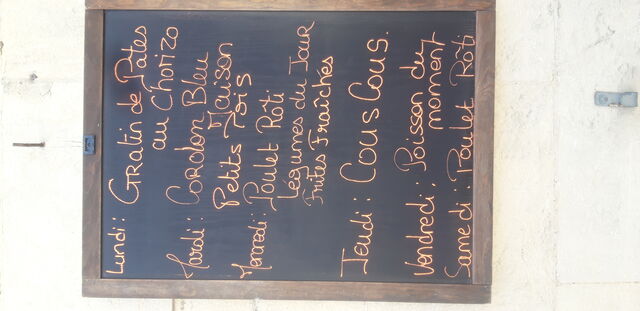 Lundi : Gratin de Pates
au Chorizo
Mardi : Cordon Bleu
Maison
Petits Pois
Mercredi : Poulet Roti
Légumes du Jour
Frites Fraîches
Jeudi : Cous Cous.
Vendredi : Poisson du
moment
Samedi : Poulet Roti